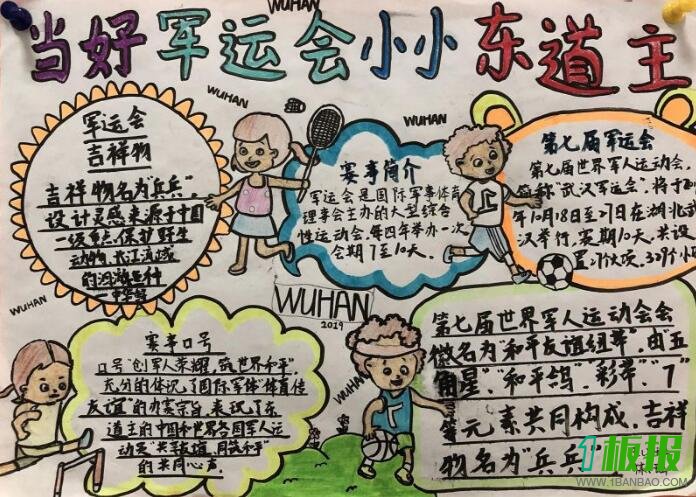 WUHAN
当好军运会小小东道主
WUHAN
WUHAN
军运会
吉祥物
吉祥物名为"兵兵",
设计灵感来源于中国
一级重点保护野生
动物,长江流域
的
中华鲟
赛事简介
军运会是国际军事体育
理事会主办的大型综合
性运动会,每四年举办一次
会期7至10天.
第七届军运会
第七届世界军人运动会,
简称"武汉军运会",将于20
年10月18日至27日在湖北武
汉举行,赛期10天,共设
置27个大项、309个小
WUHAN
WUHAN
2019
WUHAN
赛事口号
口号"创军人荣耀,筑世界和平",
充分的体况了国际军体"体育传
友谊"的办赛宗旨,表现了东
道主的中国和世界各国军人运
动员"共享友谊,同筑和平"
的共同心声.
第七届世界军人运动会会
徽名为"和平友谊纽带",由"五
角星"、"和平鸽"、彩带"、"7"
等元素共同构成,吉祥
物名为"兵兵"
1板报
WWW.1BANBAO.COM